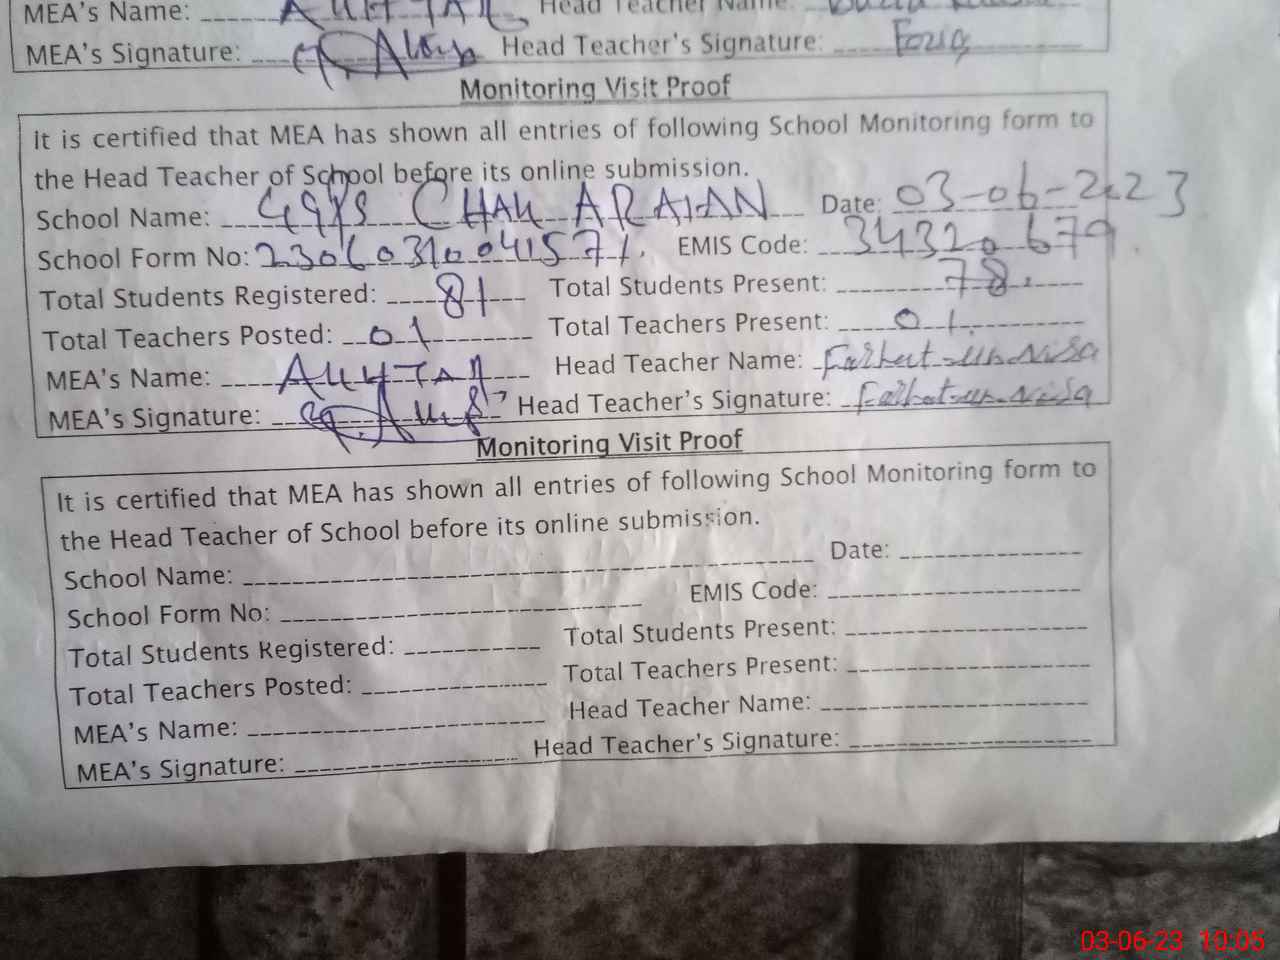 MEA's Name: AKHTAR Head Teacher Name:
MEA's Signature: Head Teacher's Signature:
Monitoring Visit Proof
It is certified that MEA has shown all entries of following School Monitoring form to
the Head Teacher of School before its online submission.
School Name: CHAK ARAIAN Date: 03-06-2023
School Form No: EMIS Code: 34320679.
Total Students Registered: 81 Total Students Present: 78.
Total Teachers Posted: 01 Total Teachers Present: 01.
MEA's Name: AKHTAR Head Teacher Name: Farhat-un-Nisa
MEA's Signature: Head Teacher's Signature: Farhat-un-Nisa
Monitoring Visit Proof
It is certified that MEA has shown all entries of following School Monitoring form to
the Head Teacher of School before its online submission.
School Name: Date:
School Form No: EMIS Code:
Total Students Registered: Total Students Present:
Total Teachers Posted: Total Teachers Present:
MEA's Name: Head Teacher Name:
MEA's Signature: Head Teacher's Signature:
03-06-23 10:05